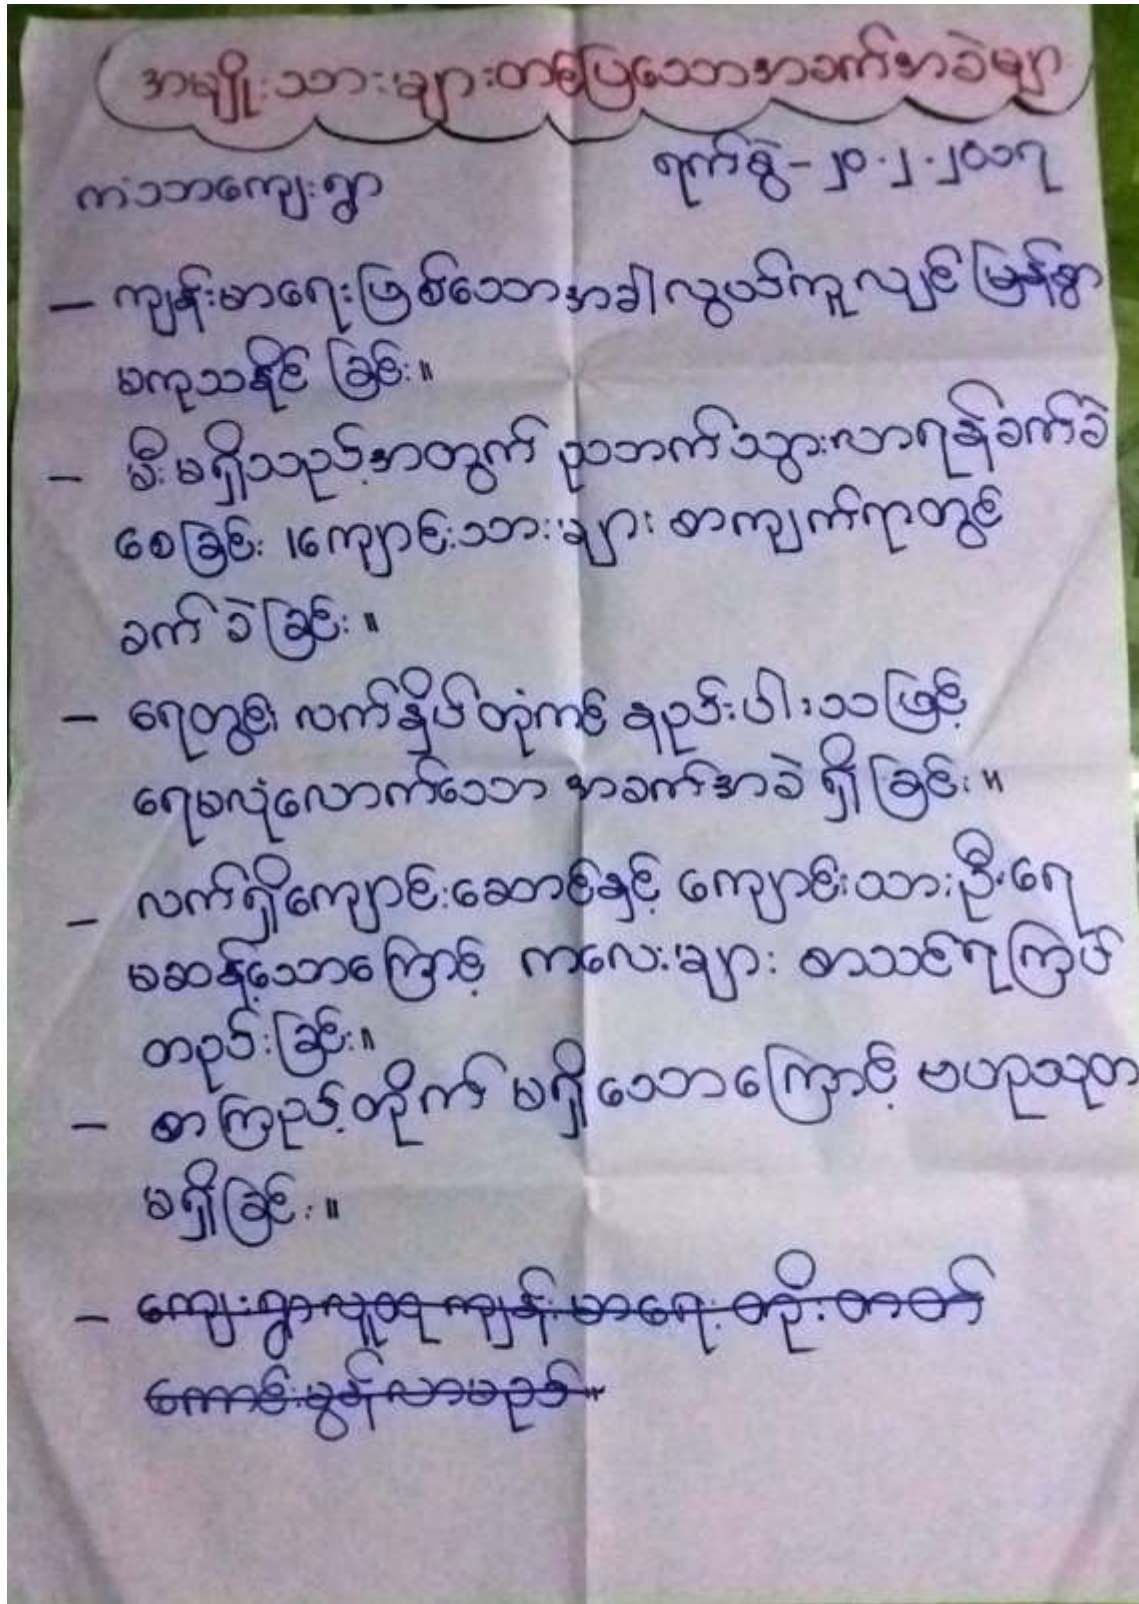 အမျိုးသားများတင်ပြသောအခက်အခဲများ
ကံသာကျေးရွာ ရက်စွဲ - ၂၀.၂.၂၀၁၇
– ကျန်းမာရေးဖြစ်သောအခါ လွယ်ကူလျင် မြန်စွာ
မကုသနိုင် ခြင်း။
– မီးမရှိသည့်အတွက် ညဘက်သွားလာရန်ခက်ခဲ
စေခြင်း ၊ကျောင်းသားများ စာကျက်ရာတွင်
ခက် ခဲခြင်း ။
– ရေတွင်း လက်နှိပ်တုံကင် နည်းပါးသဖြင့်
ရေမလုံလောက်သော အခက်အခဲ ရှိခြင်း ။
– လက်ရှိကျောင်းဆောင်နှင့် ကျောင်းသားဦးရေ
မဆန့်သောကြောင့် ကလေးများ စာသင်ရကြပ်
တည်းခြင်း။
– စာကြည့်တိုက် မရှိသောကြောင့် ဗဟုသုတ
မရှိခြင်း ။
– ကျေးရွာလူထု ကျန်းမာရေး တိုးတတ်
ကောင်းမွန်လာမည်။